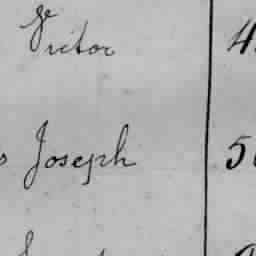 Victor 4
s Joseph 5